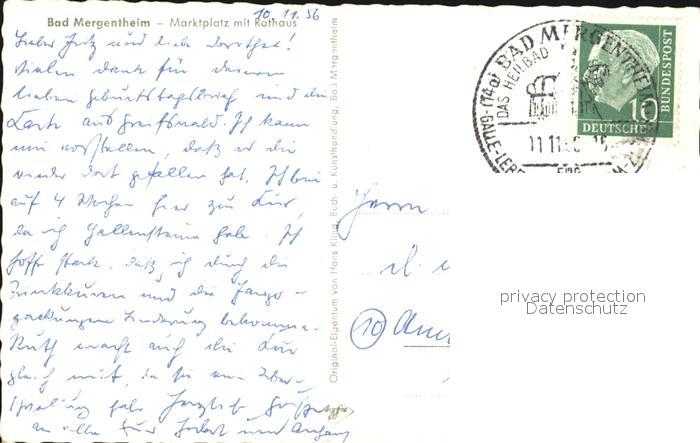 Bad Mergentheim – Marktplatz mit Rathaus
10.11.56
Lieber Fritz und liebe Dorothee!
Vielen Dank für deinen
lieben Geburtstagsbrief und die
Karte aus Greifswald. Ich kann
mir vorstellen, daß es dir
wieder dort gefallen hat. Ich bin
auf 4 Wochen hier zur Kur,
da ich Gallensteine habe. Ich
hoffe stark, daß ich durch die
Trinkkuren und die Fango-
packungen Linderung bekomme.
Ruth macht auch die Kur
gleich mit, da sie eine
hat. Herzliche Grüße
an alle Eure und
Original-Eigentum von Hans Kling, Buch- u. Kunsthandlung, Bad Mergentheim
BAD MERGENTHEIM
(14a)
DAS HEILBAD
FÜR
GALLE-LEBER
11.11.56
10
DEUTSCHE
BUNDESPOST
Herrn
(10)
privacy protection
Datenschutz